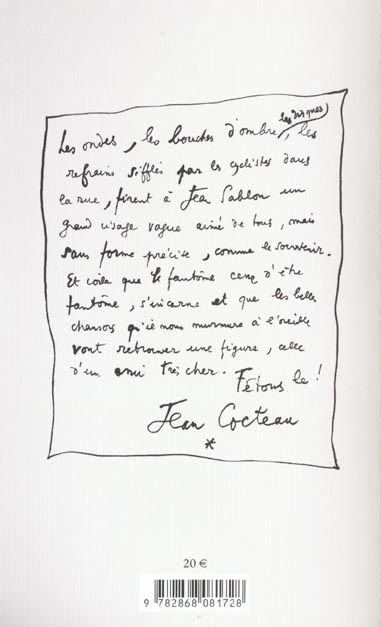 les disques
Les ondes, les bouches d'ombre, les
refrains sifflés par les cyclistes dans
la rue, firent à Jean Sablon un
grand visage vague aimé de tous, mais
sans forme précise, comme le souvenir.
Et voila que le fantôme cesse d'être
fantôme, s'incarne et que les belles
chansons qu'il nous murmure à l'oreille
vont retrouver une figure, celle
d'un ami très cher. Fêtons le !
Jean Cocteau
*
20 €
9 782868 081728